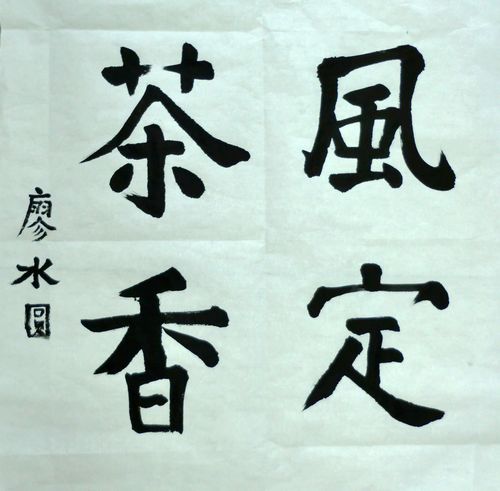 風定
茶香
廖水圓